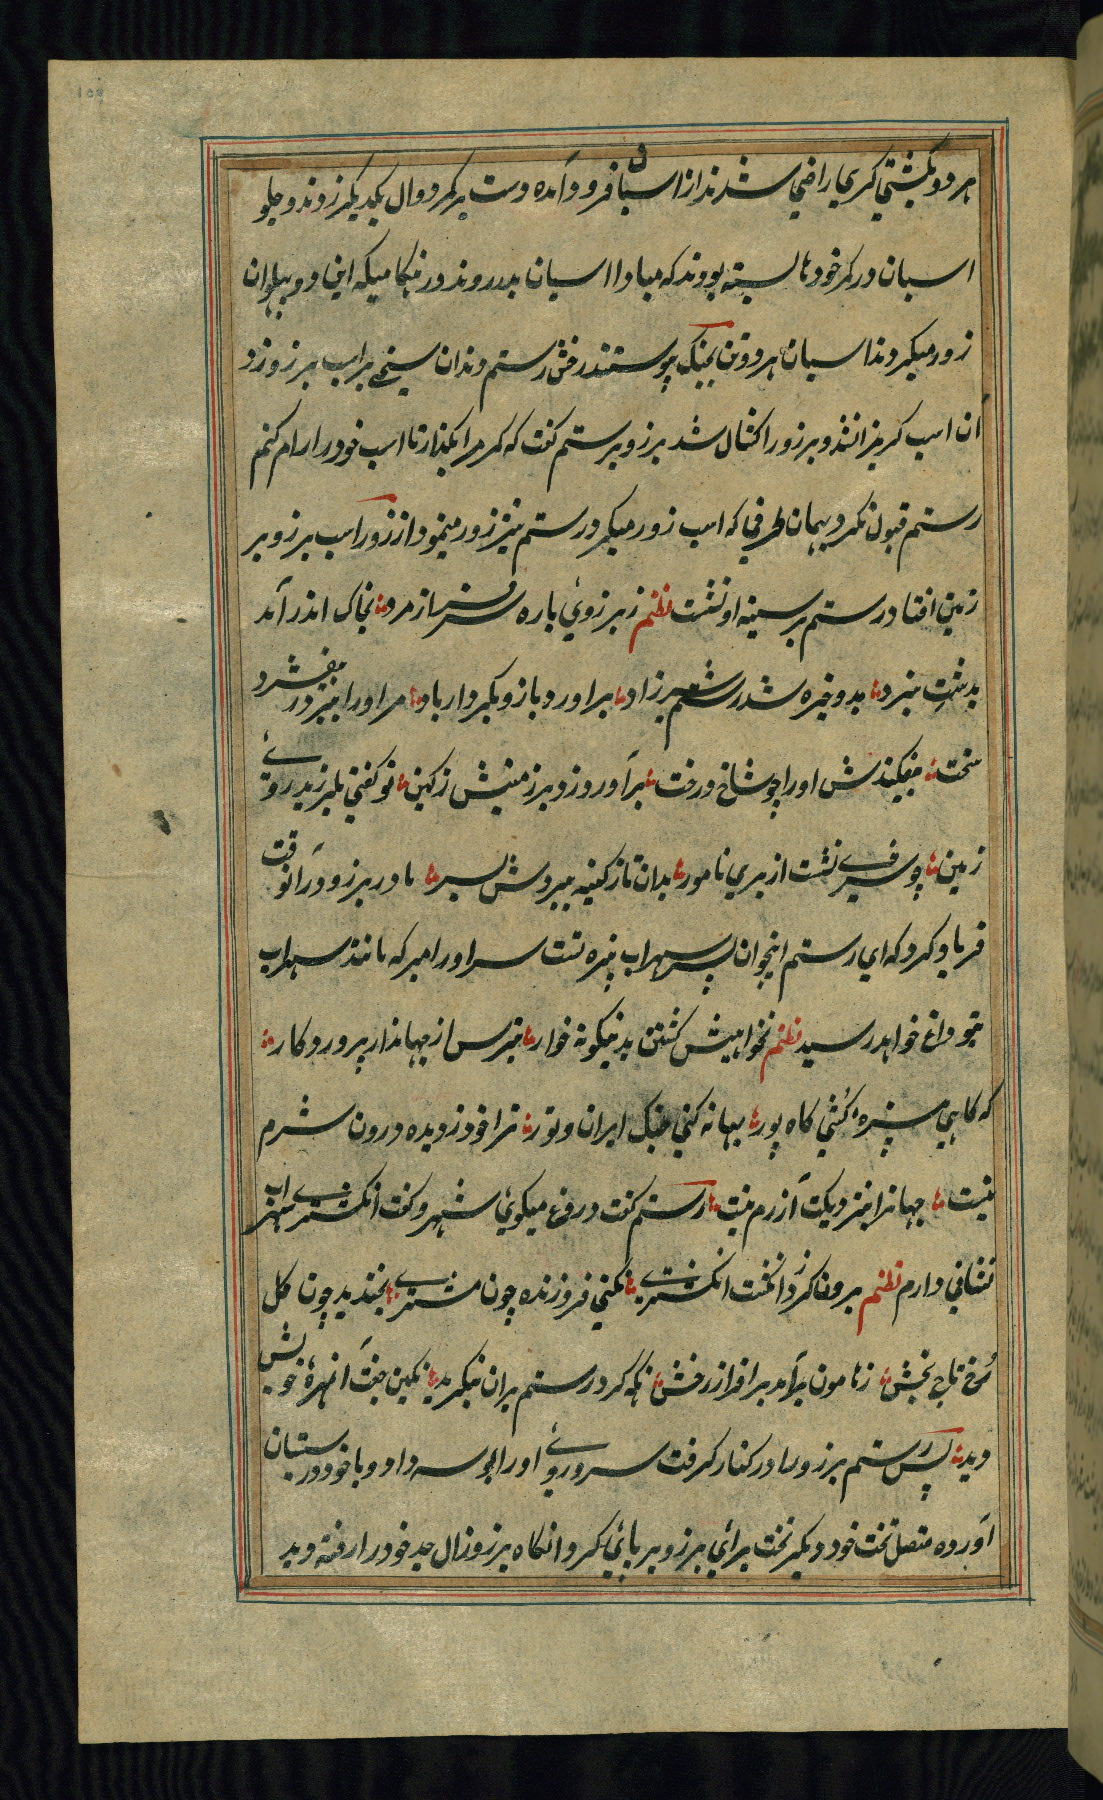 هر دو بکشتی کریها راضی شدند از اسپان فرود آمده دست بر کمر دوال یکدیگر زدند و جلو
اسپان در کمر خودها بسته بودند که مبادا اسپان بدر روند در هنکامیکه این دو پهلوان
زور میکردند اسپان هر دو تن بجنک پیوستند رخش رستم دندان سیخی بر اسب برزو زد
آن اسب کریزان شد و برزو را کشال شد برزو برستم کفت که کمر مرا بکذار تا اسب خود را رام کنم
رستم قبول نکرد بهمان طرفی که اسب زور میکرد رستم نیز زور مینمود از زور اسب برزو بر
زمین افتاد رستم بر سینه او نشست نظم ز برزوی باره سرافراز مرد بخاک اندر آمد
بدشت نبرد بدو خیره شد رستم شیرزاد برآورد بازو بکردار باد مر او را بیفشرد در
سخت بیفکندش او را چو شاخ درخت برآورد و زد بر زمینش ز کین تو کفتی بلرزید روی
زمین چو شیری نشست از بر نامور بدان تا ز کینه ببردش سر مادر برزو در آنوقت
فریاد کرد که ای رستم اینجوان پسر سهراب نبیره تست سر او را مبر که مانند سهراب
بتو داغ خواهد رسید نظم نخواهیش کشتن بدینکونه خوار نترس از جهاندار پروردکار
که کاهی نبیره کشی کاه پور بهانه کنی جنک ایران و تور ترا خود ز دیده درون شرم
نیست جهانرا بنزدیکت آزرم نیست رستم کفت دروغ میکوئی شهرو کفت انکشتری سهراب
نشانی دارم نظم برون کرد ز انکشت انکشتری نکینی فروزنده چون مشتری بخندید چون کل
رخ تاج بخش ز هامون برآمد برافراز رخش نکه کرد رستم بران بنکرید نکین جفت آن مهره خویش
دید پس رستم برزو را در کنار کرفت سر و روی او را بوسه داد و با خود در سیستان
آورده متصل تخت خود دیکر تخت برای برزو بر پای کرد آنکاه برزو زال جد خود را رفته دید